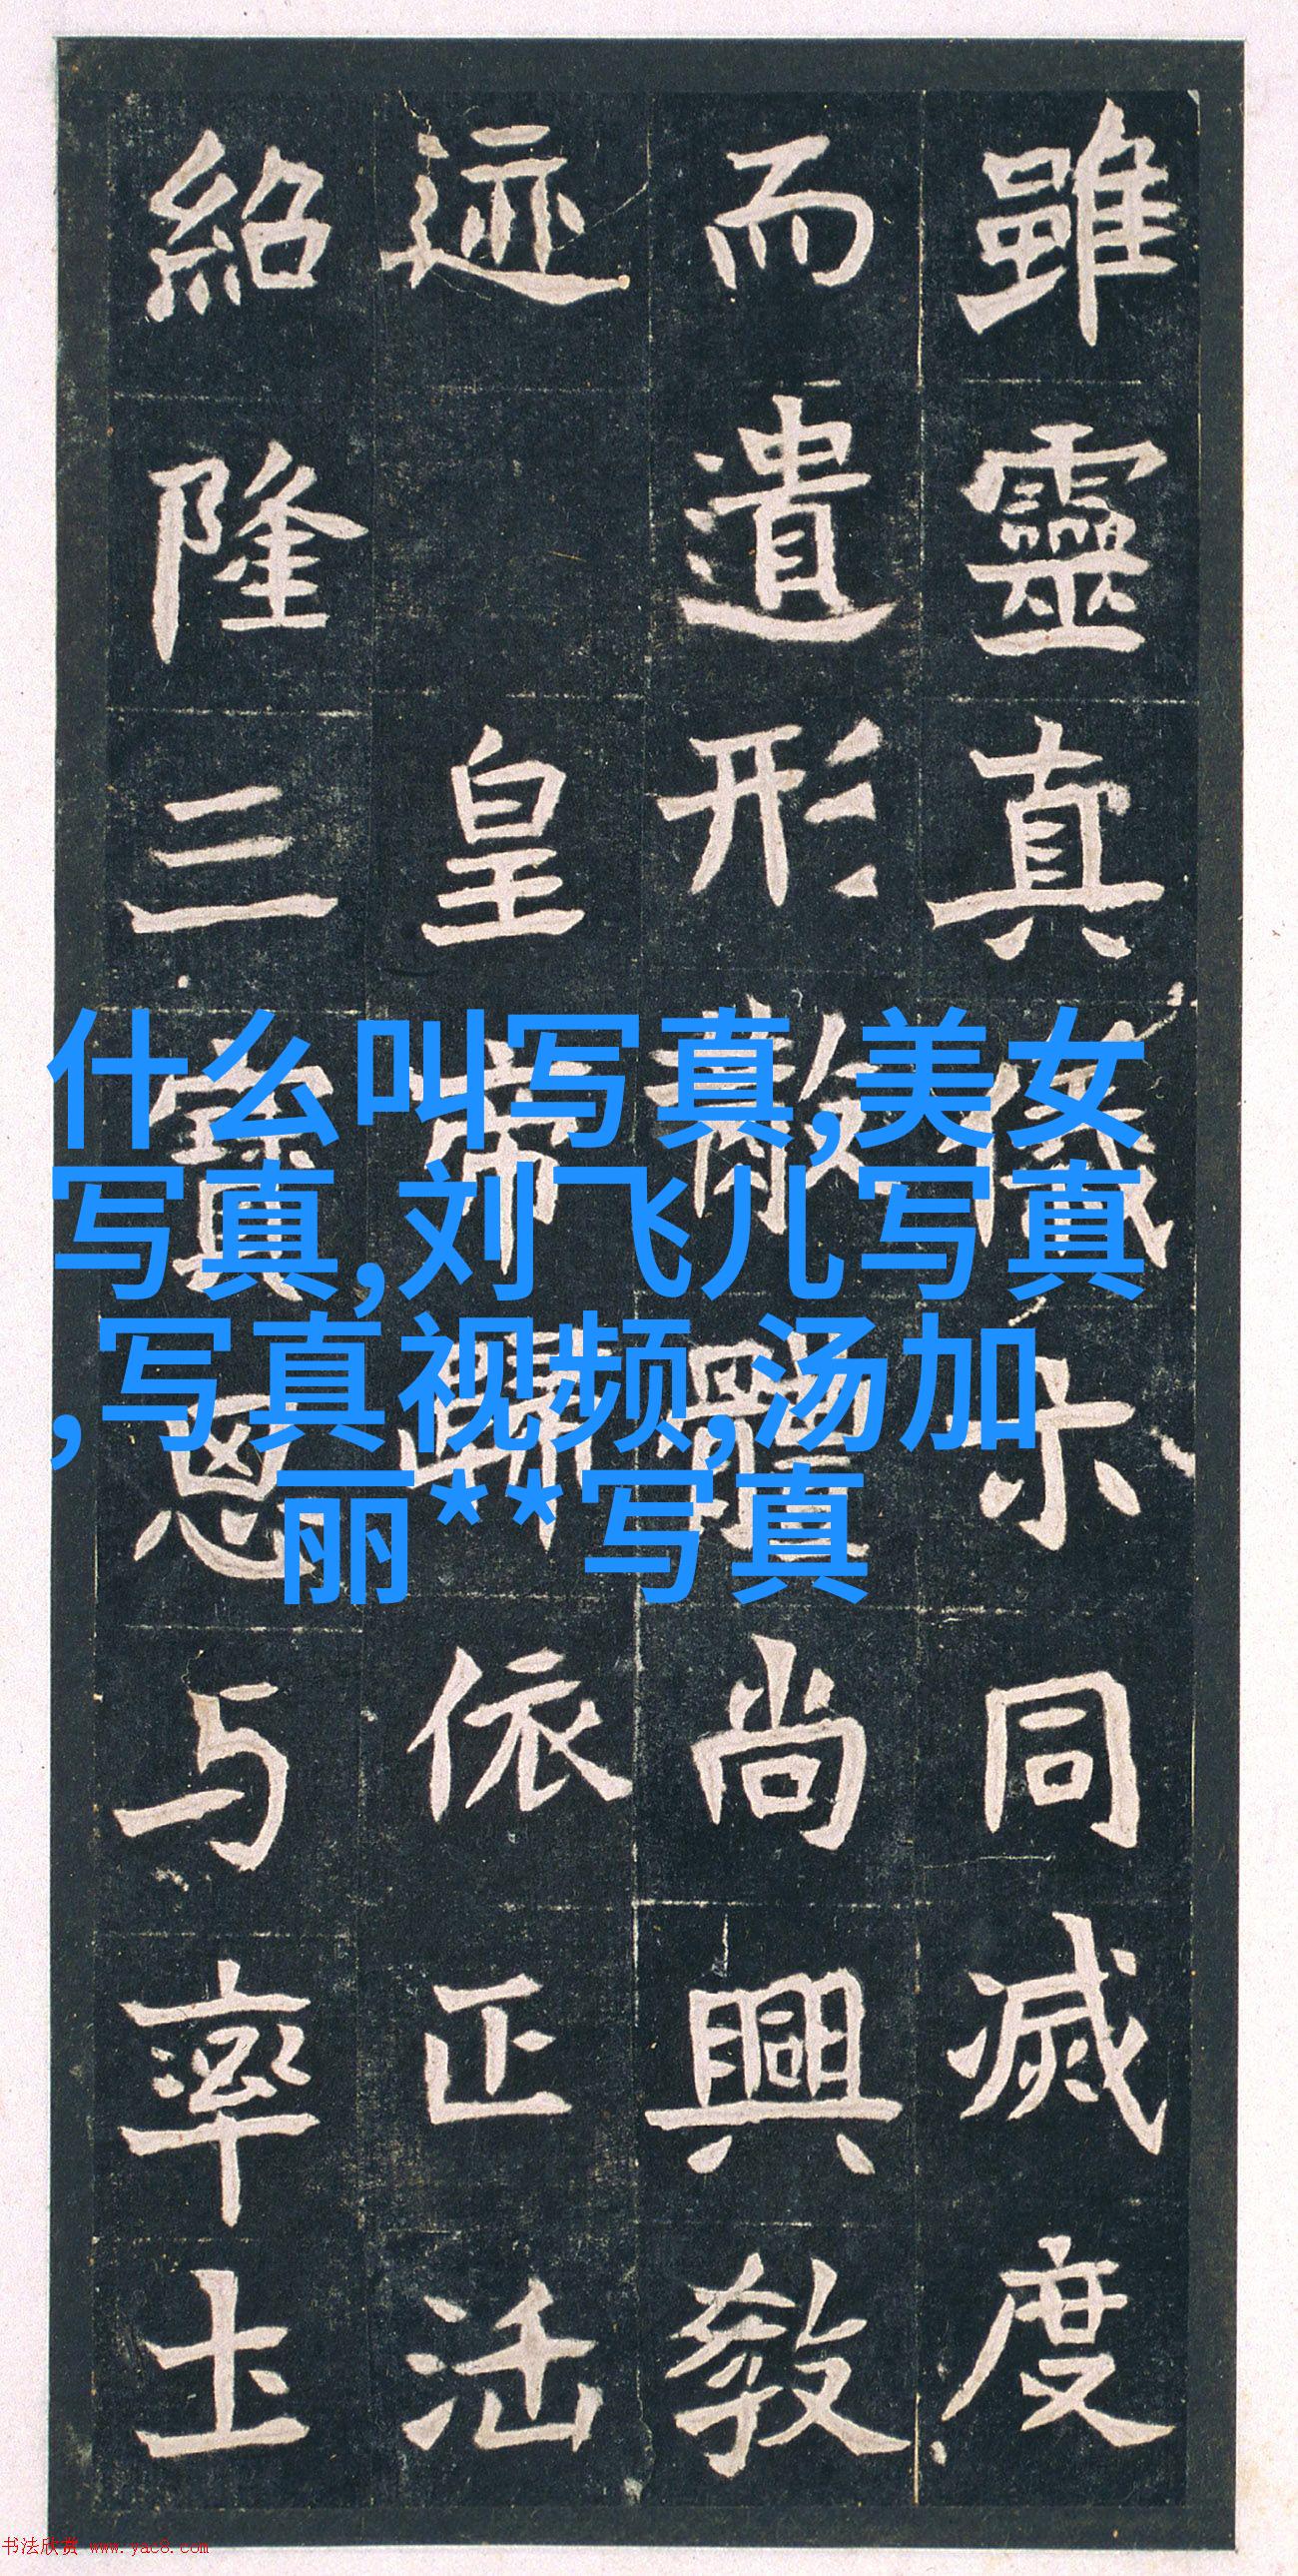 雖靈真儀示同滅度
而遺形散體尚興教
迹 皇帝歸依正法
紹隆三寶恩与率土
什么叫写真,美女
写真,刘飞儿写真
,写真视频,汤加
丽**写真
书法欣赏 www.yac8.com